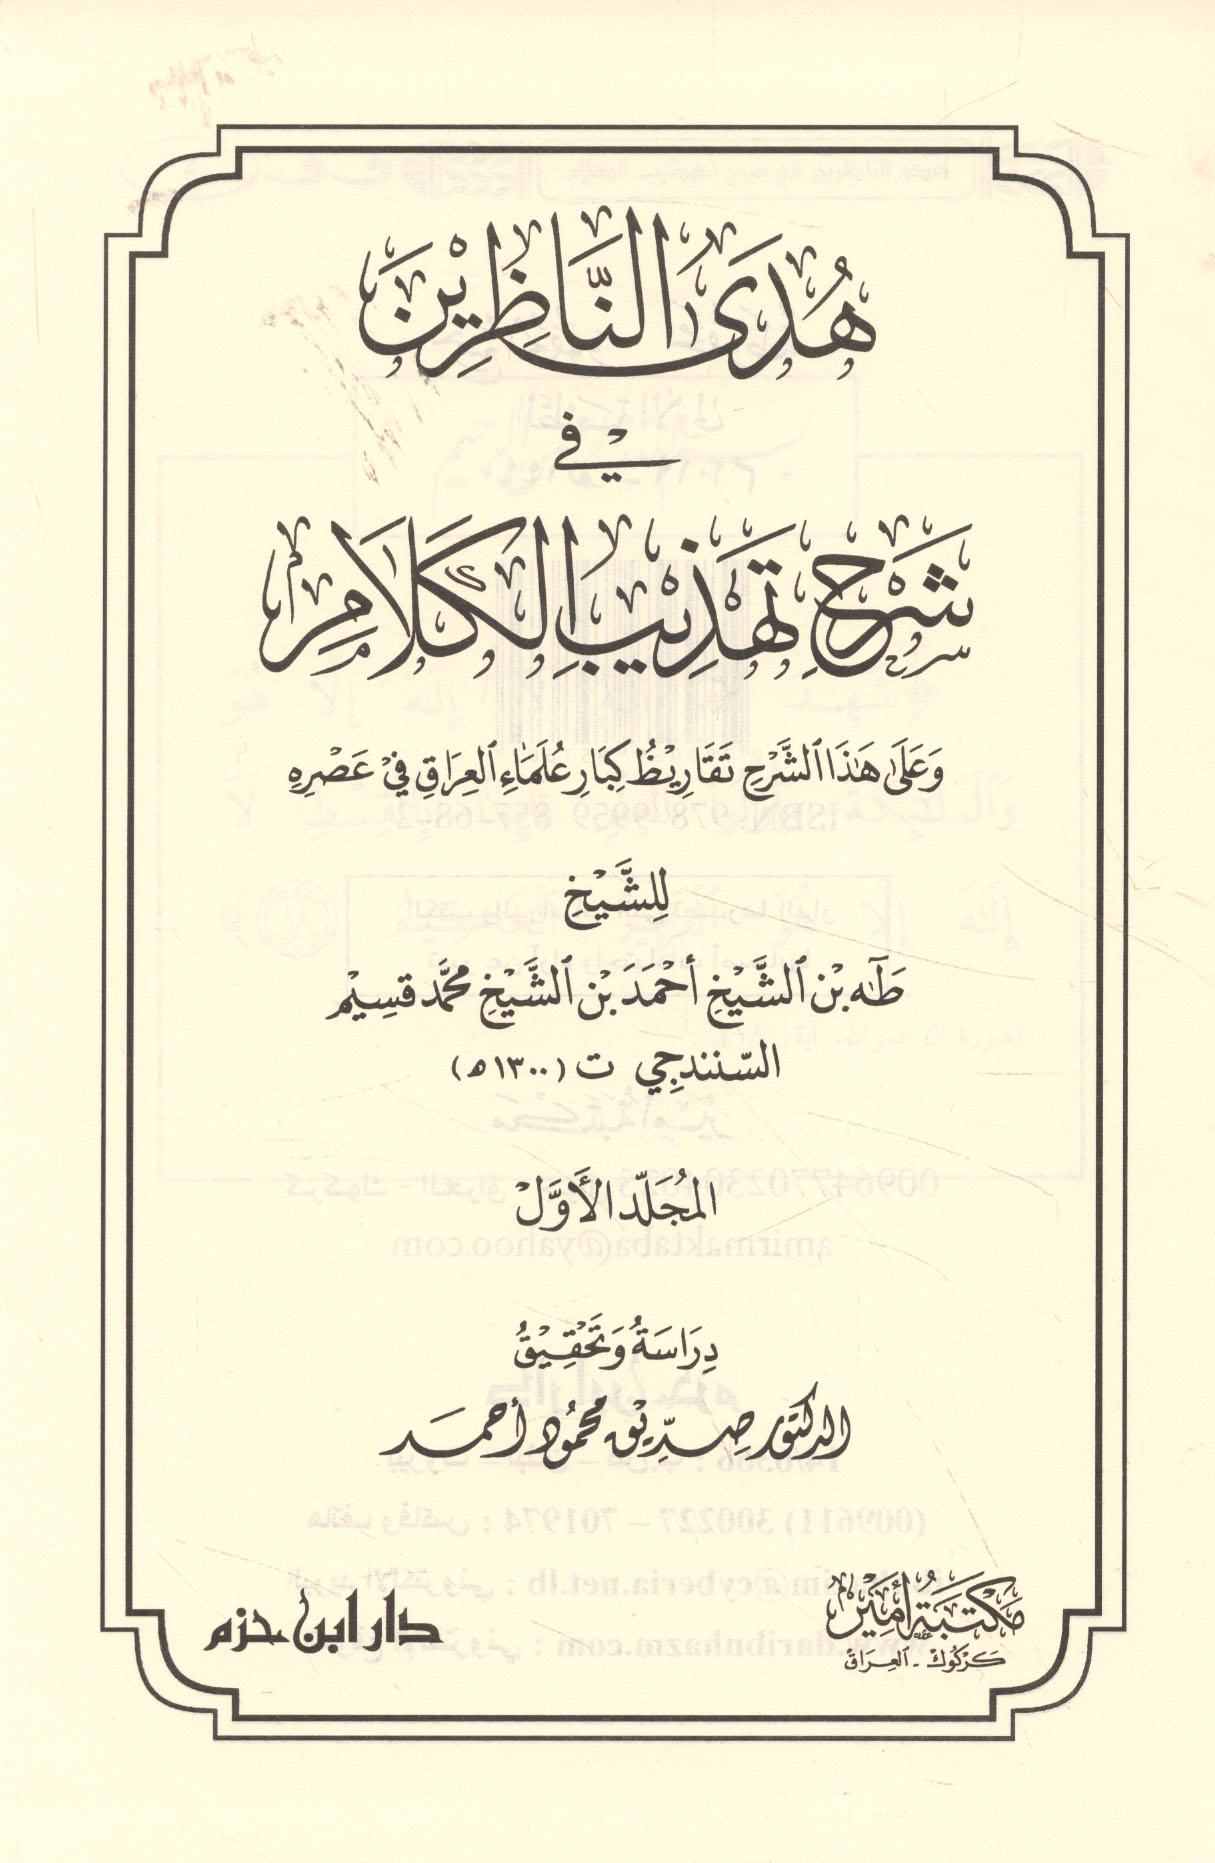 هُدَى النَّاظِرِيْنَ
فِيْ
شَرْحِ تَهْذِيْبِ الْكَلَامِ
وَعَلَىٰ هَٰذَا ٱلشَّرْحِ تَقَارِيْظُ كِبَارِ عُلَمَاءِ ٱلعِرَاقِ فِيْ عَصْرِهِ
لِلشَّيْخِ
طَٰهَ بْنِ ٱلشَّيْخِ أَحْمَدَ بْنِ ٱلشَّيْخِ مُحَمَّد قسِيْم
السّنندجِي ت (١٣٠٠ه)
المُجَلّد الأَوَّلْ
دِرَاسَةُ وَتَحْقِيْقُ
الدكتور صِدِّيْق محمُود أحمَد
مَكْتَبَةُ أَمِيْر
كَرْكُوكْ - ٱلعِرَاقْ
دار ابن حزم